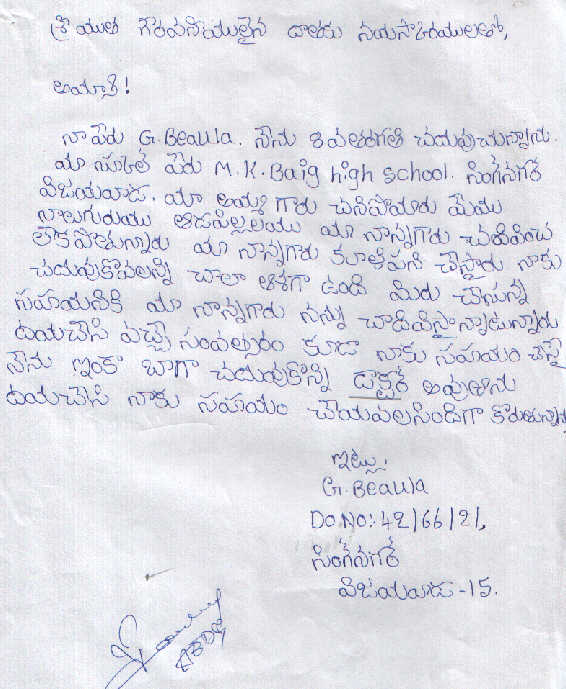 శ్రీయుత గౌరవనీయులైన దాతకు నమస్కారములతో,
అయ్యా!
నా పేరు G. Beaula. నేను 8వతరగతి చదువుచున్నాను.
మా స్కూల్ పేరు M.K. Baig high school. సింగ్‌నగర్
విజయవాడ. మా అమ్మ గారు చనిపోయారు మేము
నలుగురము ఆడపిల్లలము మా నాన్నగారు చదివించ
లేకపోతున్నారు మా నాన్నగారు కూలిపని చేస్తారు నాకు
చదువుకోవాలన్ని చాలా ఆశగా ఉంది మీరు చేసున్న
సహాయనికి మా నాన్నగారు నన్ను చాదివిస్తాన్నాఉన్నారు
దయచేసి వచ్చే సంవత్సరం కూడా నాకు సహయం చేస్తే
నేను ఇంకా బాగా చదువుకొన్ని డాక్టర్ అవుతాను
దయచేసి నాకు సహాయం చేయవలసిందిగా కోరుతున్నాను
ఇట్లు.
G. Beaula
Do.NO: 42/66/21,
సింగ్‌నగర్
విజయవాడ -15.